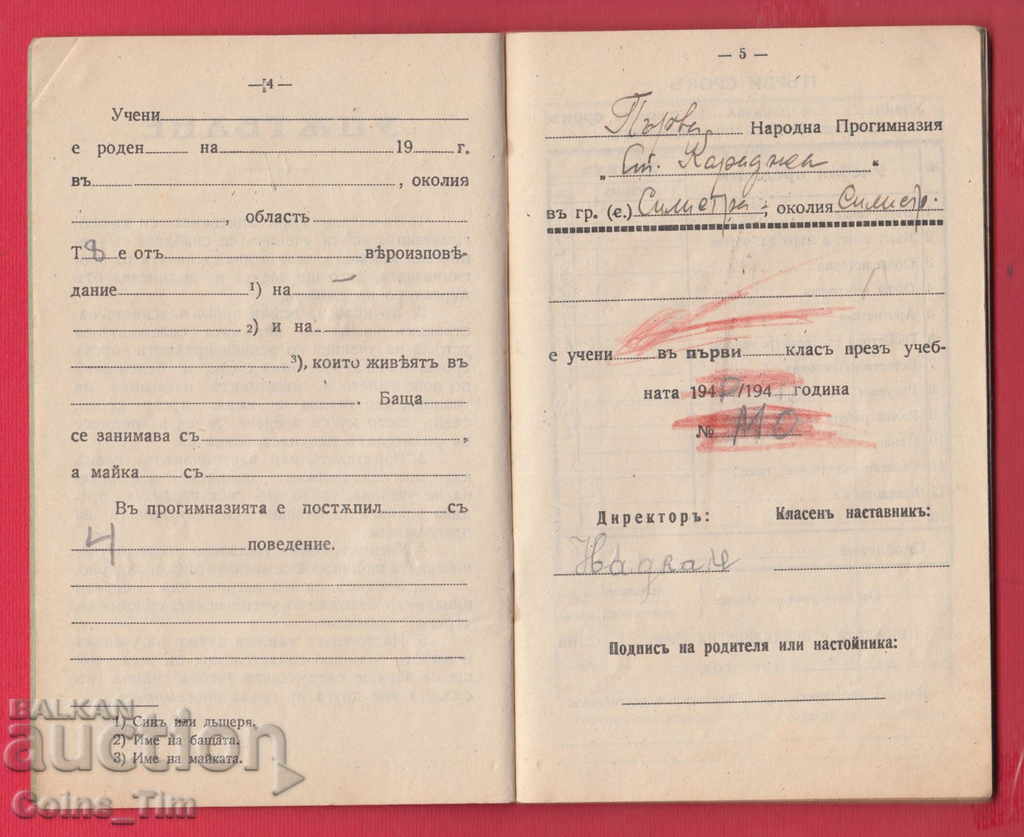 —4—
Учени
е роден на 19 г.
въ , околия
, област
Т8 е отъ вѣроизповѣ-
дание ¹) на
²) и на
³), които живѣятъ въ
. Баща
се занимава съ ,
а майка съ
Въ прогимназията е постѫпил съ
4 поведение.
1) Синъ или дъщеря.
2) Име на бащата.
3) Име на майката.
— 5 —
Първа Народна Прогимназия
„ Ст. Караджа “
въ гр. (с.) Силистра, околия Силистр.
е учени въ първи класъ презъ учеб-
ната 194 /194 година
№
Директоръ: Класенъ наставникъ:
Подпись на родителя или настойника:
BALKAN
auction
Coins_Tim